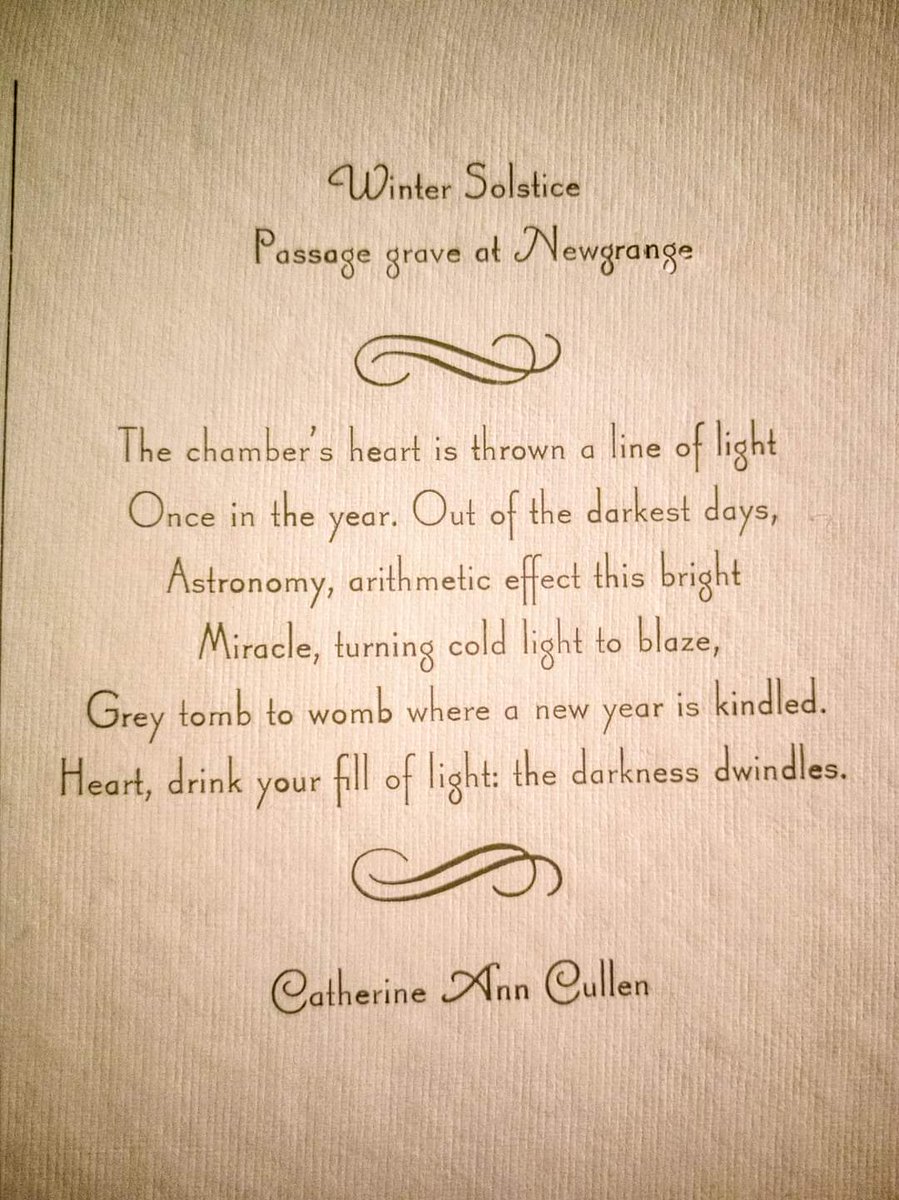 Winter Solstice
Passage grave at Newgrange
The chamber's heart is thrown a line of light
Once in the year. Out of the darkest days,
Astronomy, arithmetic effect this bright
Miracle, turning cold light to blaze,
Grey tomb to womb where a new year is kindled.
Heart, drink your fill of light: the darkness dwindles.
Catherine Ann Cullen